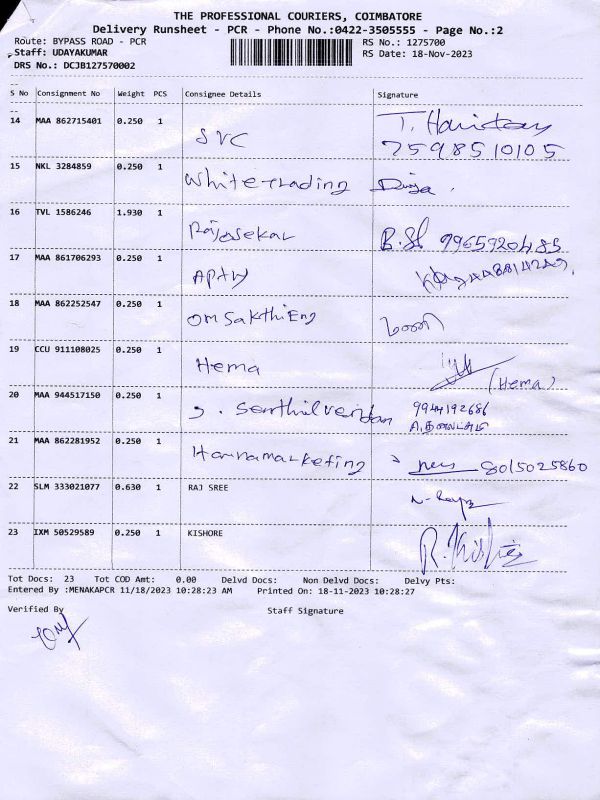 THE PROFESSIONAL COURIERS, COIMBATORE
Delivery Runsheet - PCR - Phone No.:0422-3505555 - Page No.:2
Route: BYPASS ROAD - PCR RS No.: 1275700
Staff: UDAYAKUMAR RS Date: 18-Nov-2023
DRS No.: DCJB127570002
S No Consignment No Weight PCS Consignee Details Signature
14 MAA 862715401 0.250 1 SVC
7598510105
15 NKL 3284859 0.250 1 White Trading
16 TVL 1586246 1.930 1 Rajasekar 9965920485
17 MAA 861706293 0.250 1
18 MAA 862252547 0.250 1 Om Sakthi Eng
19 CCU 911108025 0.250 1 Hema (Hema)
20 MAA 944517150 0.250 1 9944192686
21 MAA 862281952 0.250 1 8015025860
22 SLM 333021077 0.630 1 RAJ SREE
23 IXM 50529589 0.250 1 KISHORE
Tot Docs: 23 Tot COD Amt: 0.00 Delvd Docs: Non Delvd Docs: Delvy Pts:
Entered By :MENAKAPCR 11/18/2023 10:28:23 AM Printed On: 18-11-2023 10:28:27
Verified By Staff Signature